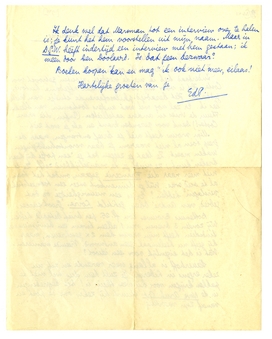 Ik denk wel dat Marsman tot een interview over te halen
is; je kunt het hem voorstellen uit mijn naam. Maar in
D.G.W. heeft indertijd een interview met hem gestaan; ik
meen door den Doolaard. Is dat geen bezwaar?
Boeken koopen kan en mag ik ook niet meer, helaas!
Hartelijke groeten van je
EdP.